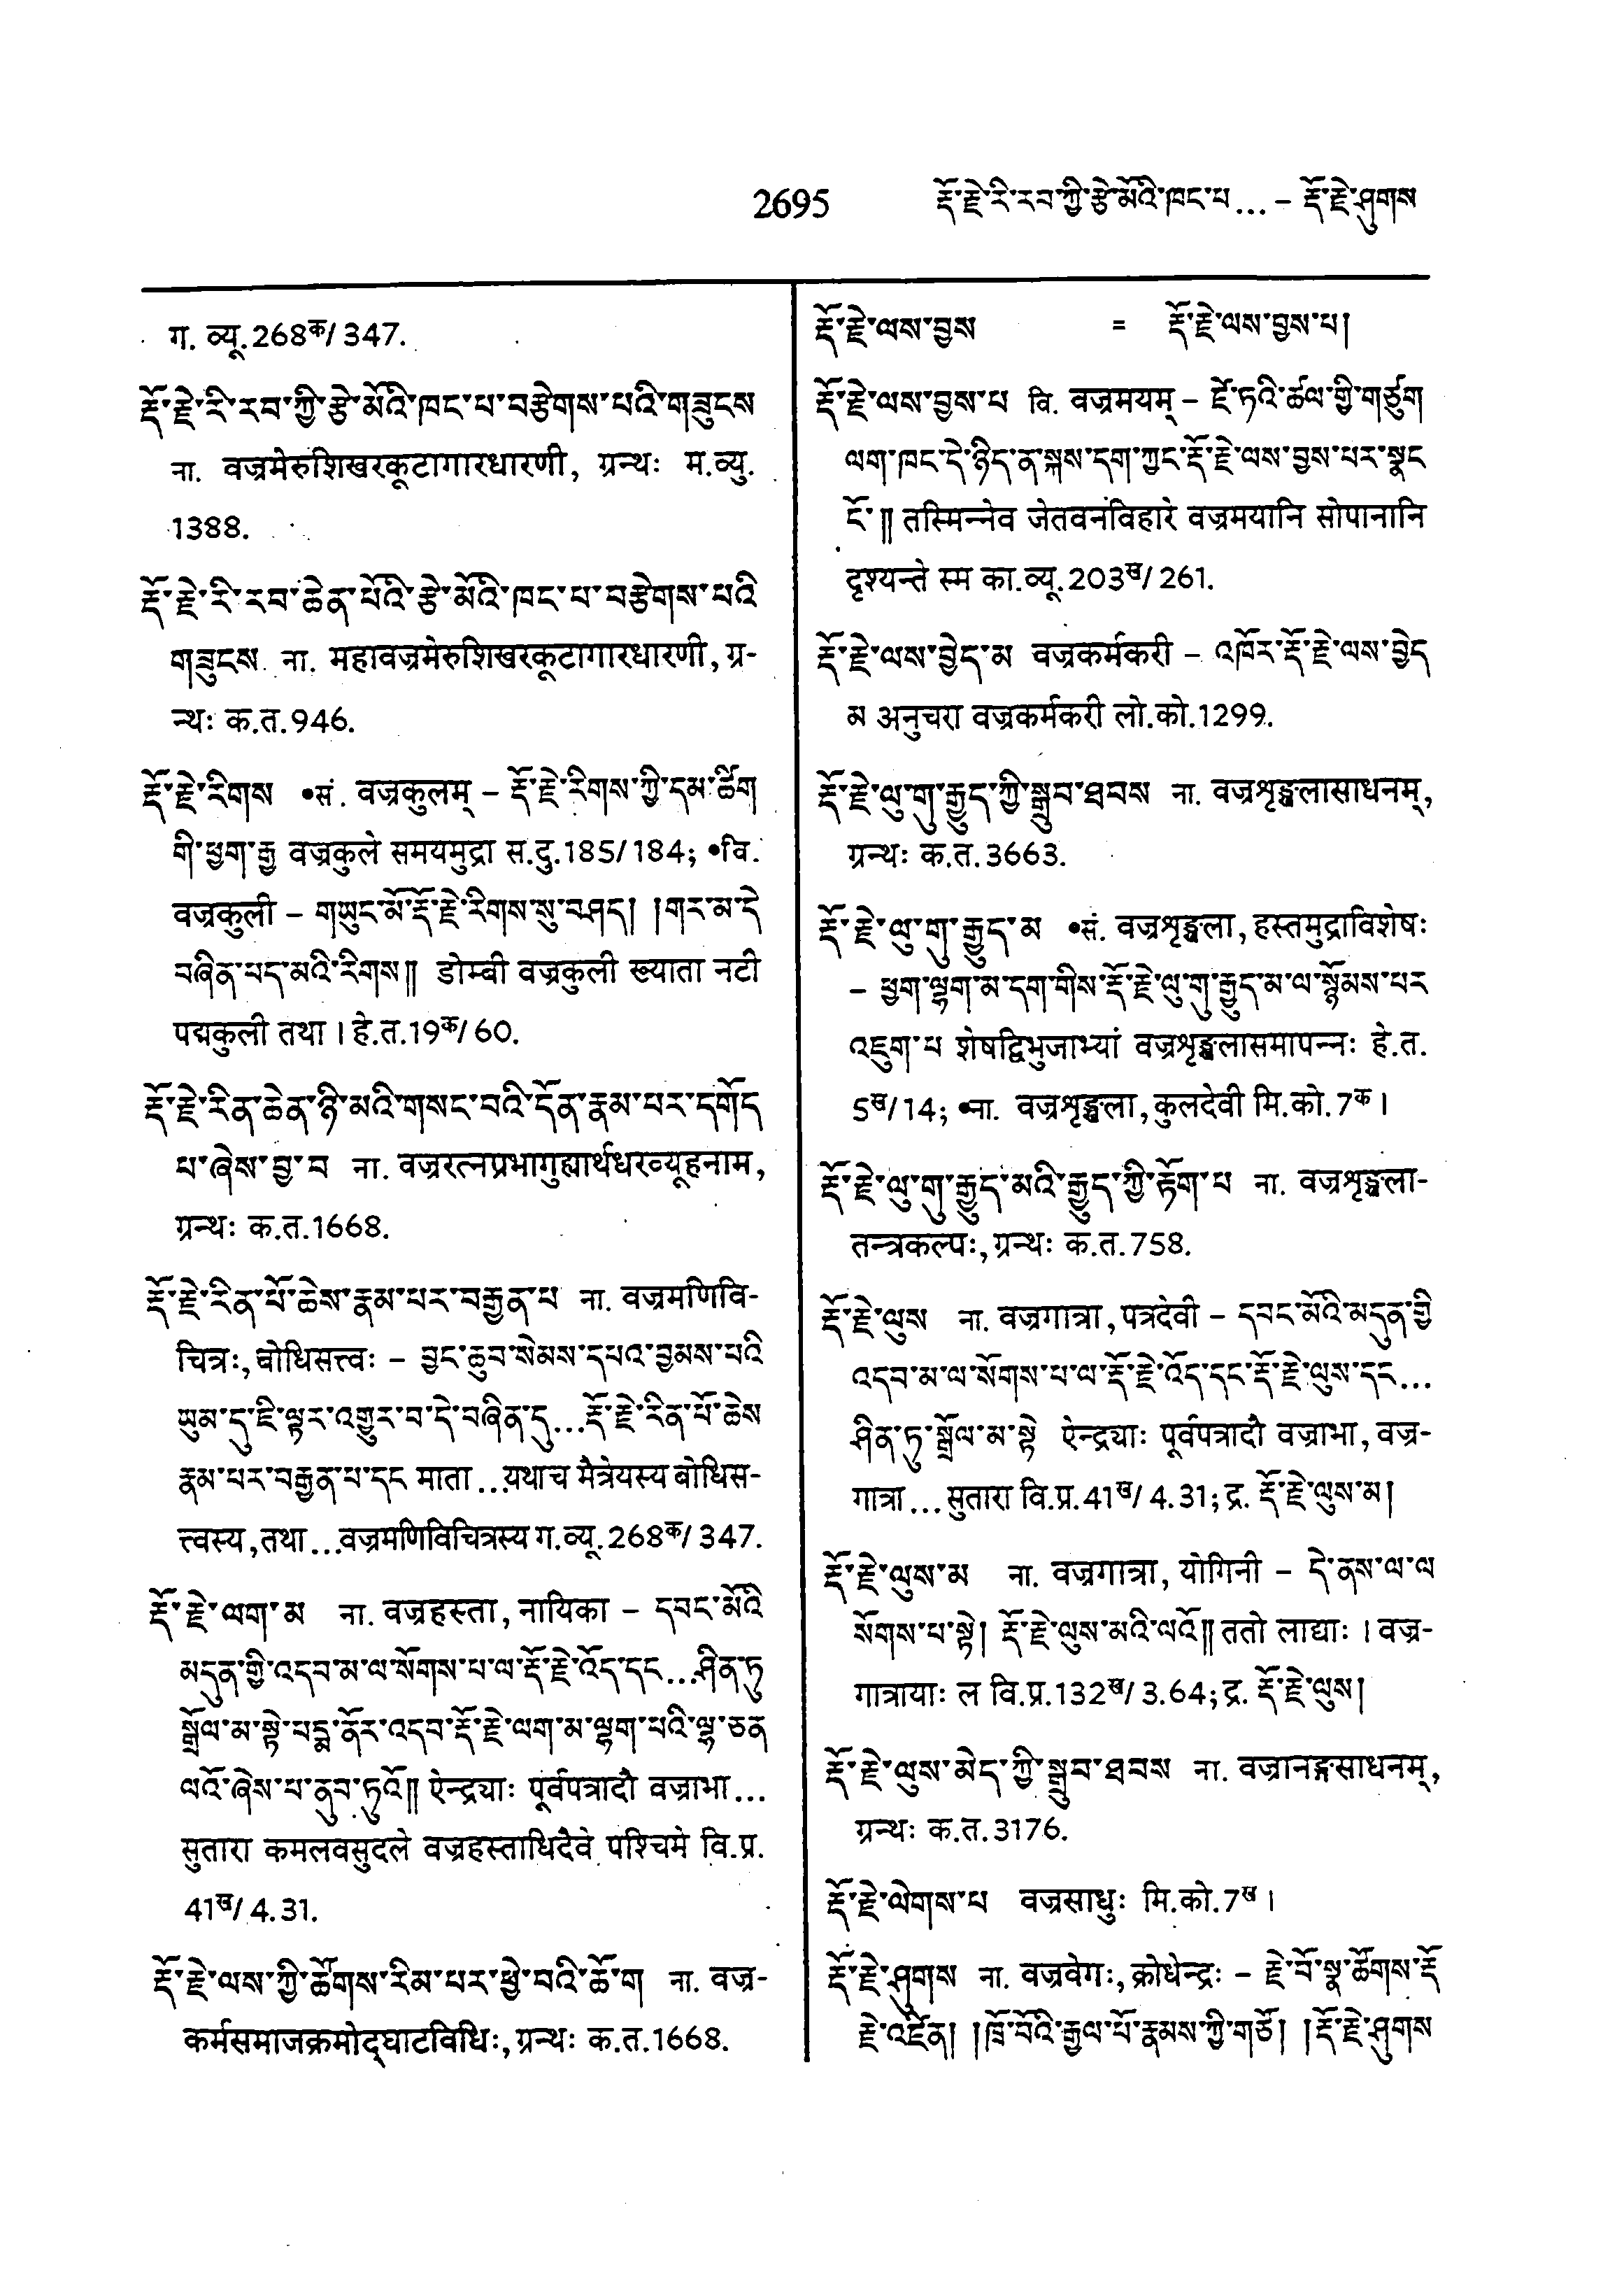 2695 རྡོ་རྗེ་རི་རབ་ཀྱི་རྩེ་མོའི་ཁང་པ... – རྡོ་རྗེ་ཤུགས
ग. व्यू.268क/347.
རྡོ་རྗེ་རི་རབ་ཀྱི་རྩེ་མོའི་ཁང་པ་བརྩེགས་པའི་གཟུངས
ना. वज्रमेरुशिखरकूटागारधारणी, ग्रन्थः म.व्यु.
1388.
རྡོ་རྗེ་རི་རབ་ཆེན་པོའི་རྩེ་མོའི་ཁང་པ་བརྩེགས་པའི
གཟུངས ना. महावज्रमेरुशिखरकूटागारधारणी, ग्र-
न्थः क.त.946.
རྡོ་རྗེ་རིགས •सं. वज्रकुलम् – རྡོ་རྗེ་རིགས་ཀྱི་དམ་ཚིག
གི་ཕྱག་རྒྱ वज्रकुले समयमुद्रा स.दु.185/184; •वि.
वज्रकुली – གཡུང་མོ་རྡོ་རྗེ་རིགས་སུ་བཤད། །གར་མ་དེ
བཞིན་པད་མའི་རིགས།། डोम्बी वज्रकुली ख्याता नटी
पद्मकुली तथा । हे.त.19क/60.
རྡོ་རྗེ་རིན་ཆེན་ཉི་མའི་གསང་བའི་དོན་རྣམ་པར་དགོད
པ་ཞེས་བྱ་བ ना. वज्ररत्नप्रभागुह्यार्थधरव्यूहनाम,
ग्रन्थः क.त.1668.
རྡོ་རྗེ་རིན་པོ་ཆེས་རྣམ་པར་བརྒྱན་པ ना. वज्रमणिवि-
चित्रः, बोधिसत्त्वः – བྱང་ཆུབ་སེམས་དཔའ་བྱམས་པའི
ཡུམ་དུ་ཇི་ལྟར་འགྱུར་བ་དེ་བཞིན་དུ...རྡོ་རྗེ་རིན་པོ་ཆེས
རྣམ་པར་བརྒྱན་པ་དང माता...यथा च मैत्रेयस्य बोधिस-
त्त्वस्य, तथा...वज्रमणिविचित्रस्य ग.व्यू.268क/347.
རྡོ་རྗེ་ལག་མ ना. वज्रहस्ता, नायिका – དབང་མོའི
མདུན་གྱི་འདབ་མ་ལ་སོགས་པ་ལ་རྡོ་རྗེ་འོད་དང...ཤིན་ཏུ
སྒྲོལ་མ་སྟེ་པདྨ་ནོར་འདབ་རྡོ་རྗེ་ལག་མ་ལྷག་པའི་ལྷ་ཅན
ལའོ་ཞེས་པ་ནུབ་ཏུའོ།། ऐन्द्र्याः पूर्वपत्रादौ वज्राभा...
सुतारा कमलवसुदले वज्रहस्ताधिदैवे पश्चिमे वि.प्र.
41ख/4.31.
རྡོ་རྗེ་ལས་ཀྱི་ཚོགས་རིམ་པར་ཕྱེ་བའི་ཆོ་ག ना. वज्र-
कर्मसमाजक्रमोद्घाटविधिः, ग्रन्थः क.त.1668.
རྡོ་རྗེ་ལས་བྱས = རྡོ་རྗེ་ལས་བྱས་པ།
རྡོ་རྗེ་ལས་བྱས་པ वि. वज्रमयम् – ཛེ་ཏའི་ཚལ་གྱི་གཙུག
ལག་ཁང་དེ་ཉིད་ན་སྐས་དག་ཀྱང་རྡོ་རྗེ་ལས་བྱས་པར་སྣང
ངོ་།། तस्मिन्नेव जेतवनविहारे वज्रमयानि सोपानानि
दृश्यन्ते स्म का.व्यू.203ख/261.
རྡོ་རྗེ་ལས་བྱེད་མ वज्रकर्मकरी – འཁོར་རྡོ་རྗེ་ལས་བྱེད
མ अनुचरा वज्रकर्मकरी लो.को.1299.
རྡོ་རྗེ་ལུ་གུ་རྒྱུད་ཀྱི་སྒྲུབ་ཐབས ना. वज्रशृङ्खलासाधनम्,
ग्रन्थः क.त.3663.
རྡོ་རྗེ་ལུ་གུ་རྒྱུད་མ •सं. वज्रशृङ्खला, हस्तमुद्राविशेषः
– ཕྱག་ལྷག་མ་དག་གིས་རྡོ་རྗེ་ལུ་གུ་རྒྱུད་མ་ལ་སྙོམས་པར
འཇུག་པ शेषद्विभुजाभ्यां वज्रशृङ्खलासमापन्नः हे.त.
5ख/14; •ना. वज्रशृङ्खला, कुलदेवी मि.को.7क ।
རྡོ་རྗེ་ལུ་གུ་རྒྱུད་མའི་རྒྱུད་ཀྱི་རྟོག་པ ना. वज्रशृङ्खला-
तन्त्रकल्पः, ग्रन्थः क.त.758.
རྡོ་རྗེ་ལུས ना. वज्रगात्रा, पत्रदेवी – དབང་མོའི་མདུན་གྱི
འདབ་མ་ལ་སོགས་པ་ལ་རྡོ་རྗེ་འོད་དང་རྡོ་རྗེ་ལུས་དང...
ཤིན་ཏུ་སྒྲོལ་མ་སྟེ ऐन्द्र्याः पूर्वपत्रादौ वज्राभा, वज्र-
गात्रा...सुतारा वि.प्र.41ख/4.31; द्र. རྡོ་རྗེ་ལུས་མ།
རྡོ་རྗེ་ལུས་མ ना. वज्रगात्रा, योगिनी – དེ་ནས་ལ་ལ
སོགས་པ་སྟེ། རྡོ་རྗེ་ལུས་མའི་ལའོ།། ततो लाद्याः । वज्र-
गात्रायाः ल वि.प्र.132ख/3.64; द्र. རྡོ་རྗེ་ལུས།
རྡོ་རྗེ་ལུས་མེད་ཀྱི་སྒྲུབ་ཐབས ना. वज्रानङ्गसाधनम्,
ग्रन्थः क.त.3176.
རྡོ་རྗེ་ལེགས་པ वज्रसाधुः मि.को.7ख ।
རྡོ་རྗེ་ཤུགས ना. वज्रवेगः, क्रोधेन्द्रः – རྗེ་བོ་སྣ་ཚོགས་རྡོ
རྗེ་འཛིན། །ཁྲོ་བོའི་རྒྱལ་པོ་རྣམས་ཀྱི་གཙོ། །རྡོ་རྗེ་ཤུགས